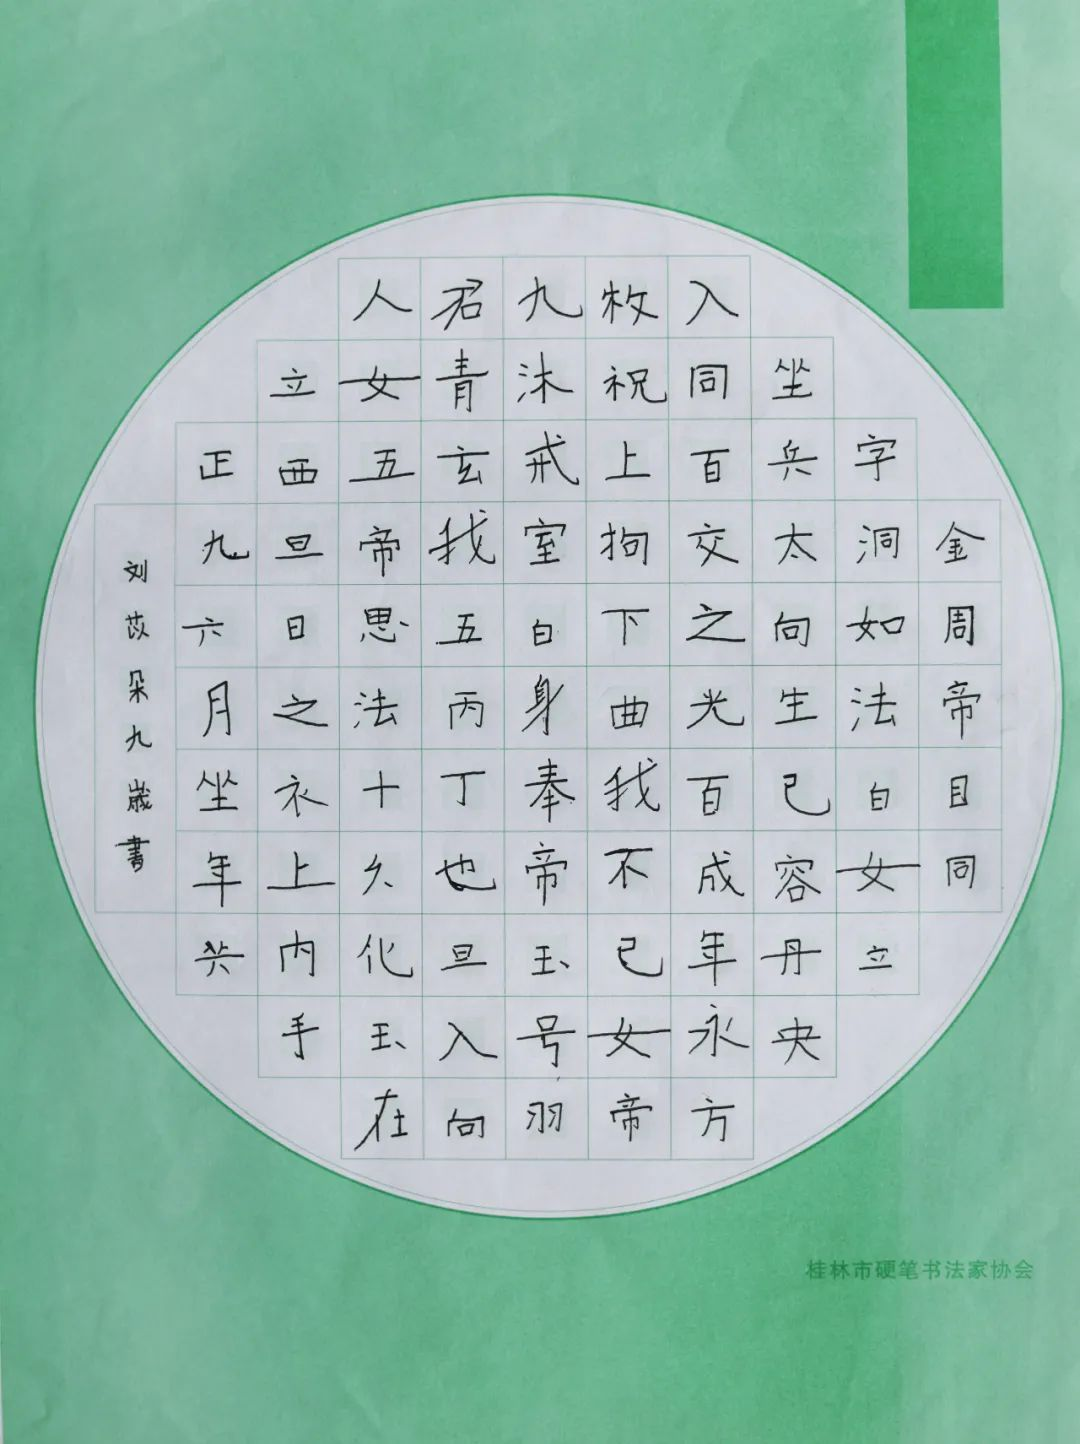 金周帝目同
字洞如法白女立
坐兵太向生已容丹央
入同百交之光百成年永方
枚祝上拘下曲我不已女帝
九沐戒室白身奉帝玉号羽
君青玄我五丙丁也旦入向
人女五帝思法十久化玉在
立西旦日之衣上内手
正九六月坐年共
刘苡朵九歲書
桂林市硬笔书法家协会